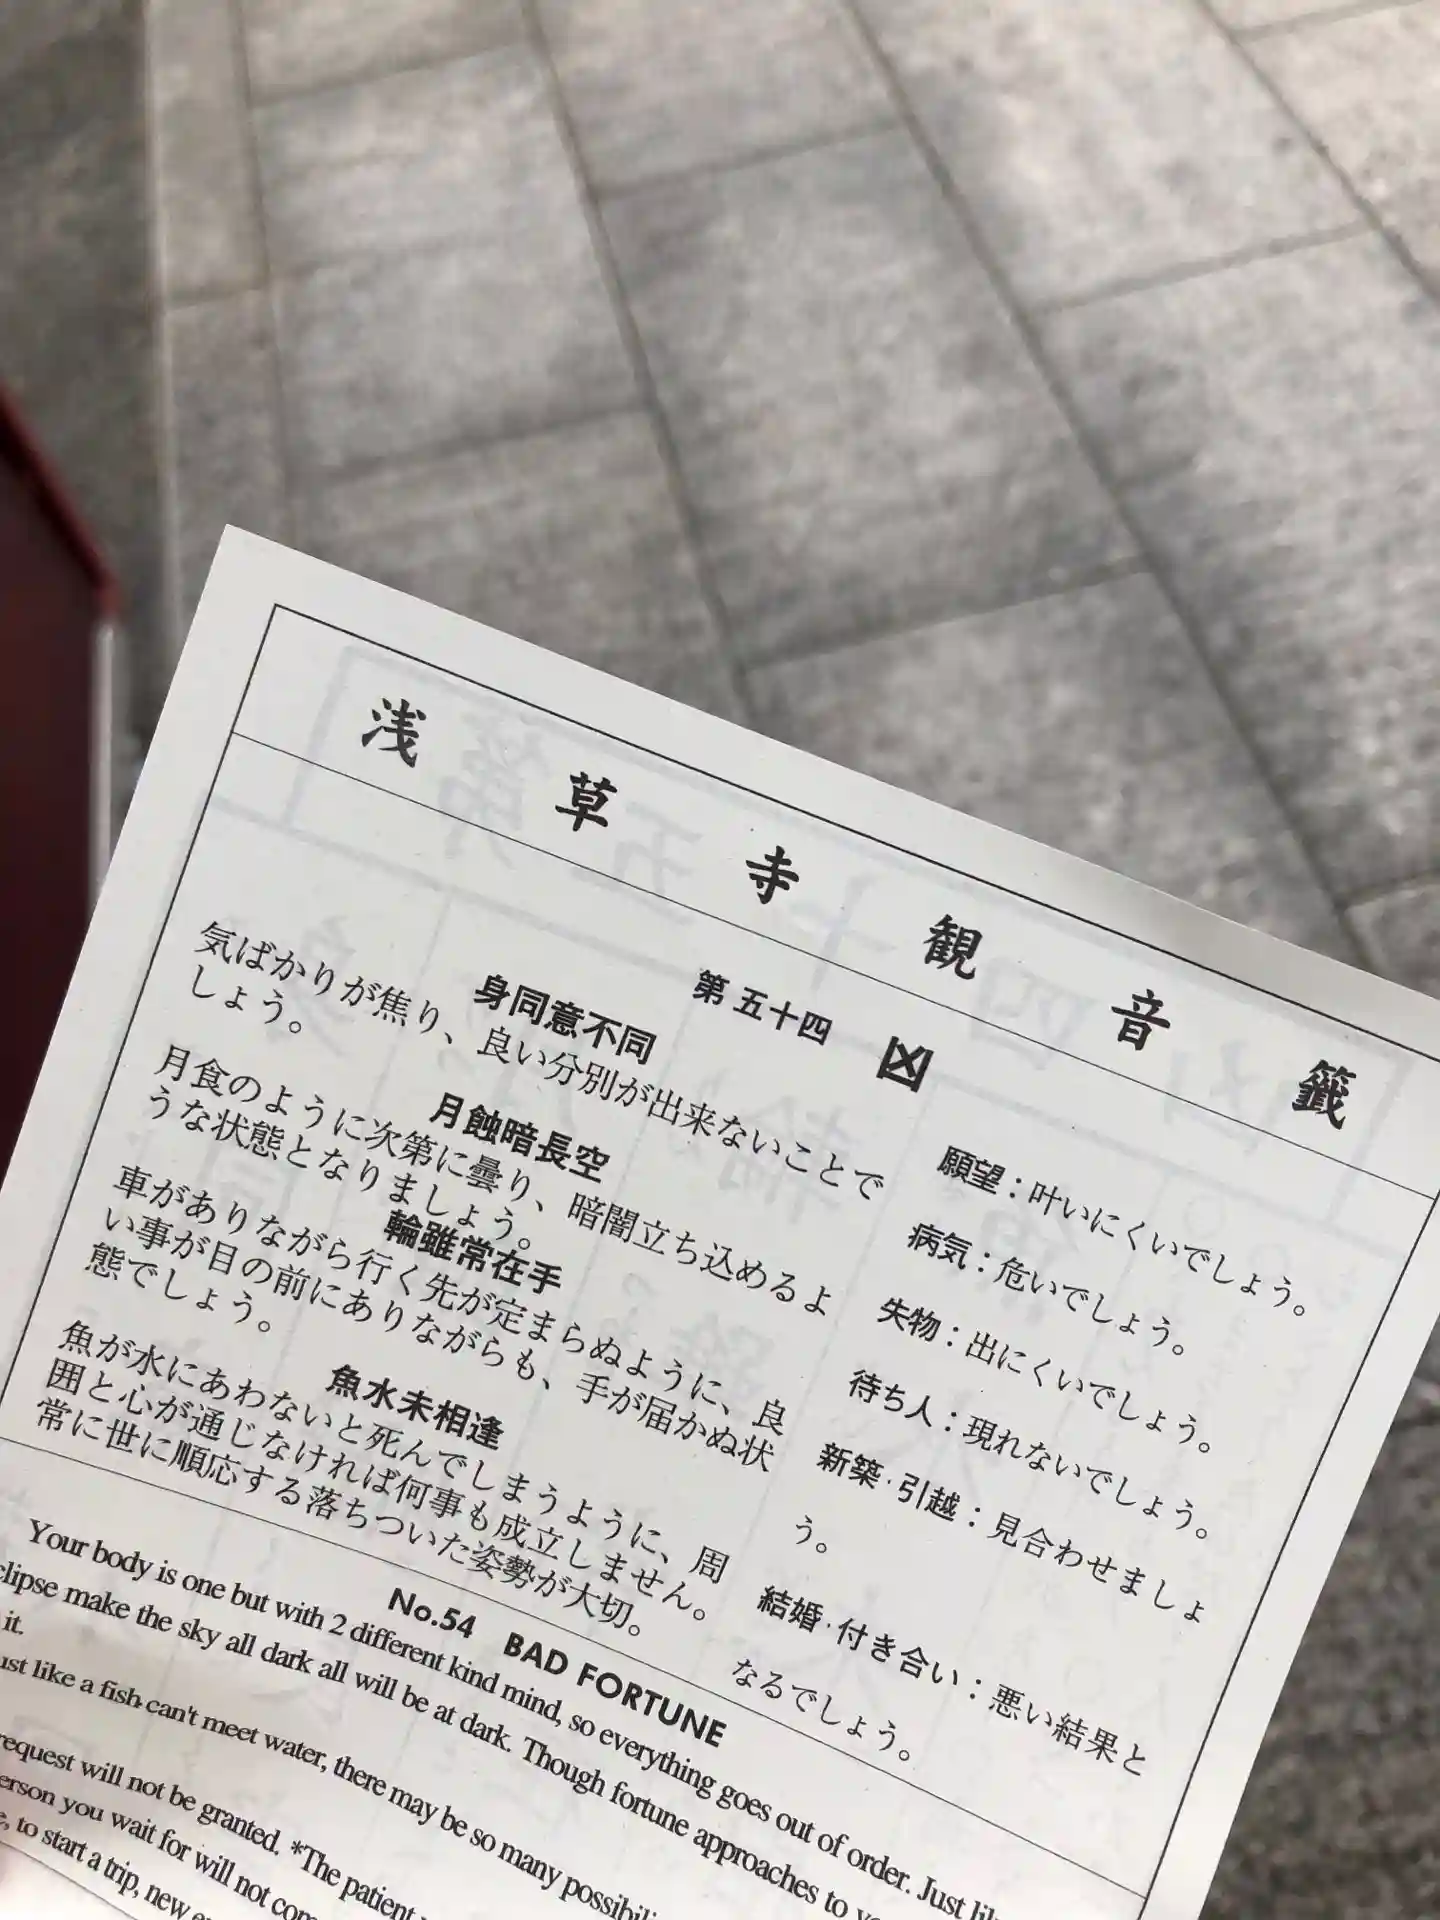 浅草寺観音籤
第五十四 凶
身同意不同
気ばかりが焦り、良い分別が出来ないことで
しょう。
月蝕暗長空
月食のように次第に曇り、暗闇立ち込めるよ
うな状態となりましょう。
輪雖常在手
車がありながら行く先が定まらぬように、良
い事が目の前にありながらも、手が届かぬ状
態でしょう。
魚水未相逢
魚が水にあわないと死んでしまうように、周
囲と心が通じなければ何事も成立しません。
常に世に順応する落ちついた姿勢が大切。
願望：叶いにくいでしょう。
病気：危いでしょう。
失物：出にくいでしょう。
待ち人：現れないでしょう。
新築・引越：見合わせましょ
う。
結婚・付き合い：悪い結果と
なるでしょう。
No.54 BAD FORTUNE
Your body is one but with 2 different kind mind, so everything goes out of order. Just
eclipse make the sky all dark all will be at dark. Though fortune approaches to
it.
Just like a fish can't meet water, there may be so many
request will not be granted. *The patient
person you wait for will not
to start a trip, new